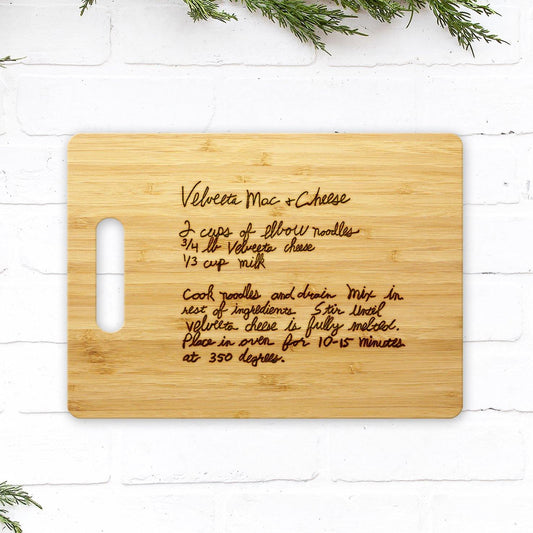 Velveeta Mac + Cheese
2 cups of elbow noodles
3/4 lb Velveeta cheese
1/3 cup milk
Cook noodles and drain Mix in
rest of ingredients Stir Until
Velveeta cheese is fully melted.
Place in oven for 10-15 Minutes
at 350 degrees.